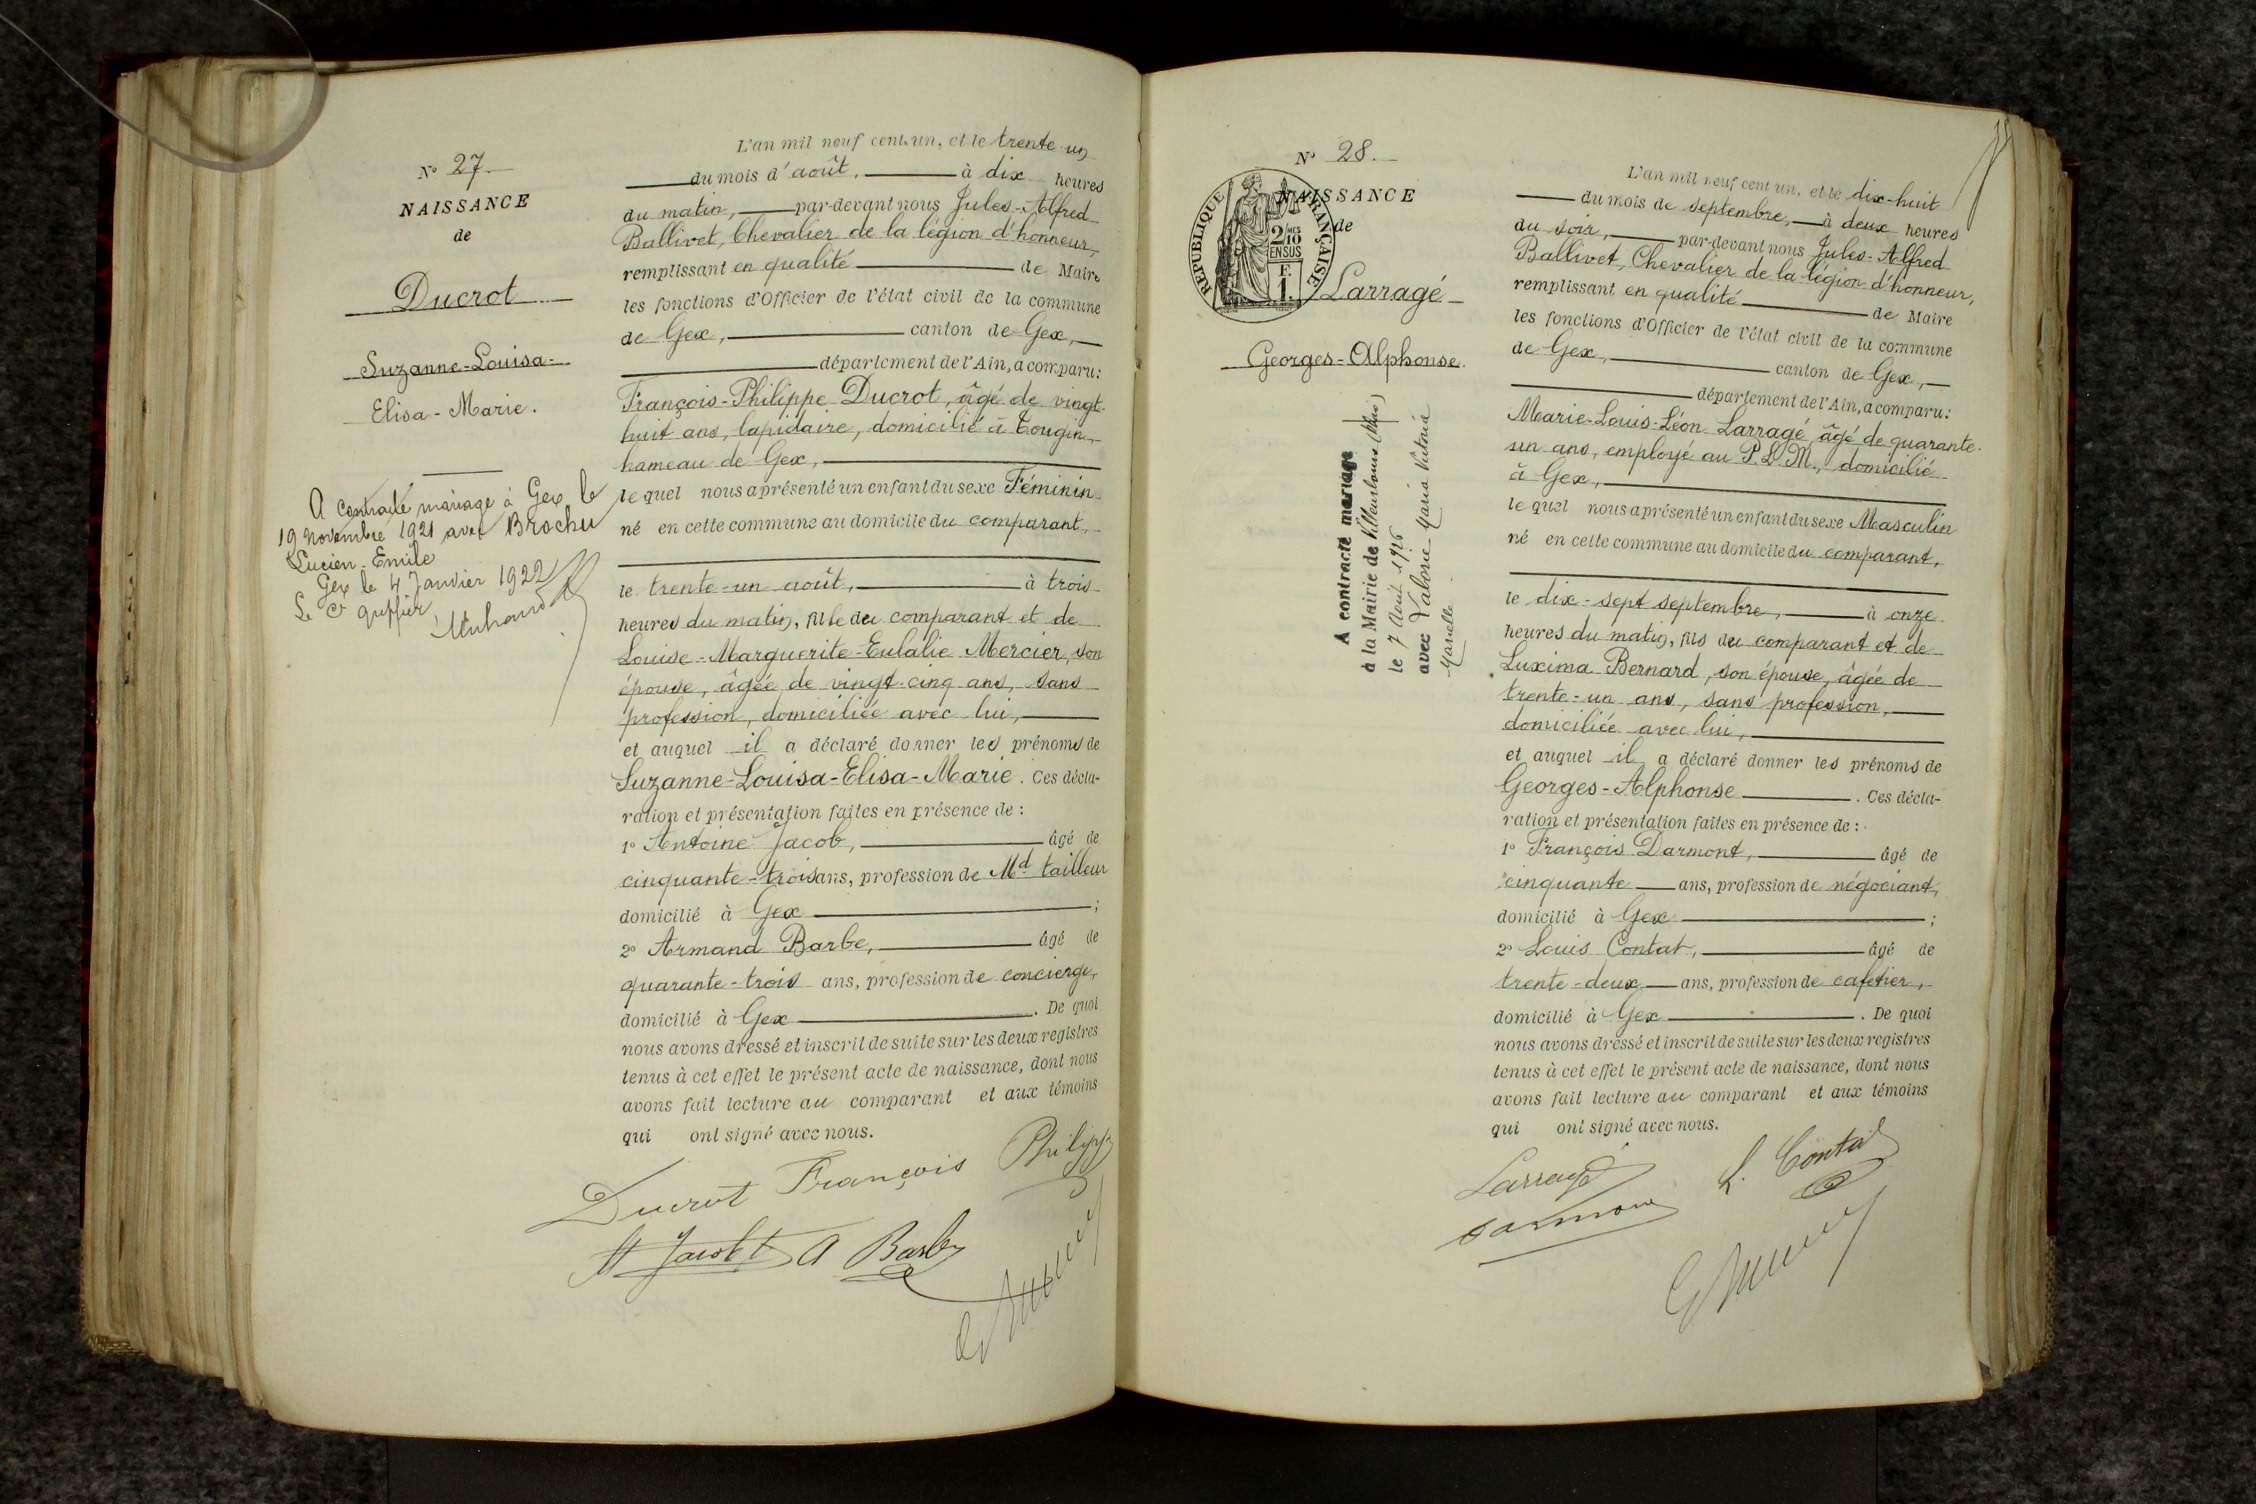 N° 27
NAISSANCE
de
Ducrot
Suzanne-Louisa-
Elisa-Marie.
A contracté mariage à Gex le
19 novembre 1921 avec Brochu
Lucien-Emile
Gex le 4 Janvier 1922
Le Cs greffier
L'an mil neuf cent un, et le trente-un
du mois d'août, à dix heures
du matin, par-devant nous Jules-Alfred
Ballivet, Chevalier de la légion d'honneur,
remplissant en qualité de Maire
les fonctions d'Officier de l'état civil de la commune
de Gex, canton de Gex,
département de l'Ain, a comparu:
François-Philippe Ducrot, âgé de vingt-
huit ans, lapidaire, domicilié à Tougin,
hameau de Gex,
lequel nous a présenté un enfant du sexe Féminin
né en cette commune au domicile du comparant,
le trente-un août, à trois
heures du matin, fille du comparant et de
Louise-Marguerite-Eulalie Mercier, son
épouse, âgée de vingt-cinq ans, sans
profession, domiciliée avec lui,
et auquel il a déclaré donner les prénoms de
Suzanne-Louisa-Elisa-Marie. Ces décla-
ration et présentation faites en présence de :
1° Antoine Jacob, âgé de
cinquante-trois ans, profession de Md tailleur
domicilié à Gex ;
2° Armand Barbe, âgé de
quarante-trois ans, profession de concierge,
domicilié à Gex . De quoi
nous avons dressé et inscrit de suite sur les deux registres
tenus à cet effet le présent acte de naissance, dont nous
avons fait lecture au comparant et aux témoins
qui ont signé avec nous.
Ducrot François Philipp
Jacob A Barbe
N° 28.
NAISSANCE
de
REPUBLIQUE FRANÇAISE
2/10 EN SUS
F. 1.
Larragé
Georges-Alphonse.
A contracté mariage
à la Mairie de Villeurbanne (Rhône)
le 7 Août 1926
avec
L'an mil neuf cent un, et le dix-huit
du mois de septembre, à deux heures
du soir, par-devant nous Jules-Alfred
Ballivet, Chevalier de la légion d'honneur,
remplissant en qualité de Maire
les fonctions d'Officier de l'état civil de la commune
de Gex, canton de Gex,
département de l'Ain, a comparu:
Marie-Louis-Léon Larragé âgé de quarante-
un ans, employé au P.L.M., domicilié
à Gex,
lequel nous a présenté un enfant du sexe Masculin
né en cette commune au domicile du comparant,
le dix-sept septembre, à onze
heures du matin, fils du comparant et de
Luxima Bernard, son épouse, âgée de
trente-un ans, sans profession,
domiciliée avec lui,
et auquel il a déclaré donner les prénoms de
Georges-Alphonse . Ces décla-
ration et présentation faites en présence de :
1° François Darmont, âgé de
cinquante ans, profession de négociant,
domicilié à Gex ;
2° Louis Contat, âgé de
trente-deux ans, profession de cafetier,
domicilié à Gex . De quoi
nous avons dressé et inscrit de suite sur les deux registres
tenus à cet effet le présent acte de naissance, dont nous
avons fait lecture au comparant et aux témoins
qui ont signé avec nous.
Larragé L. Contat